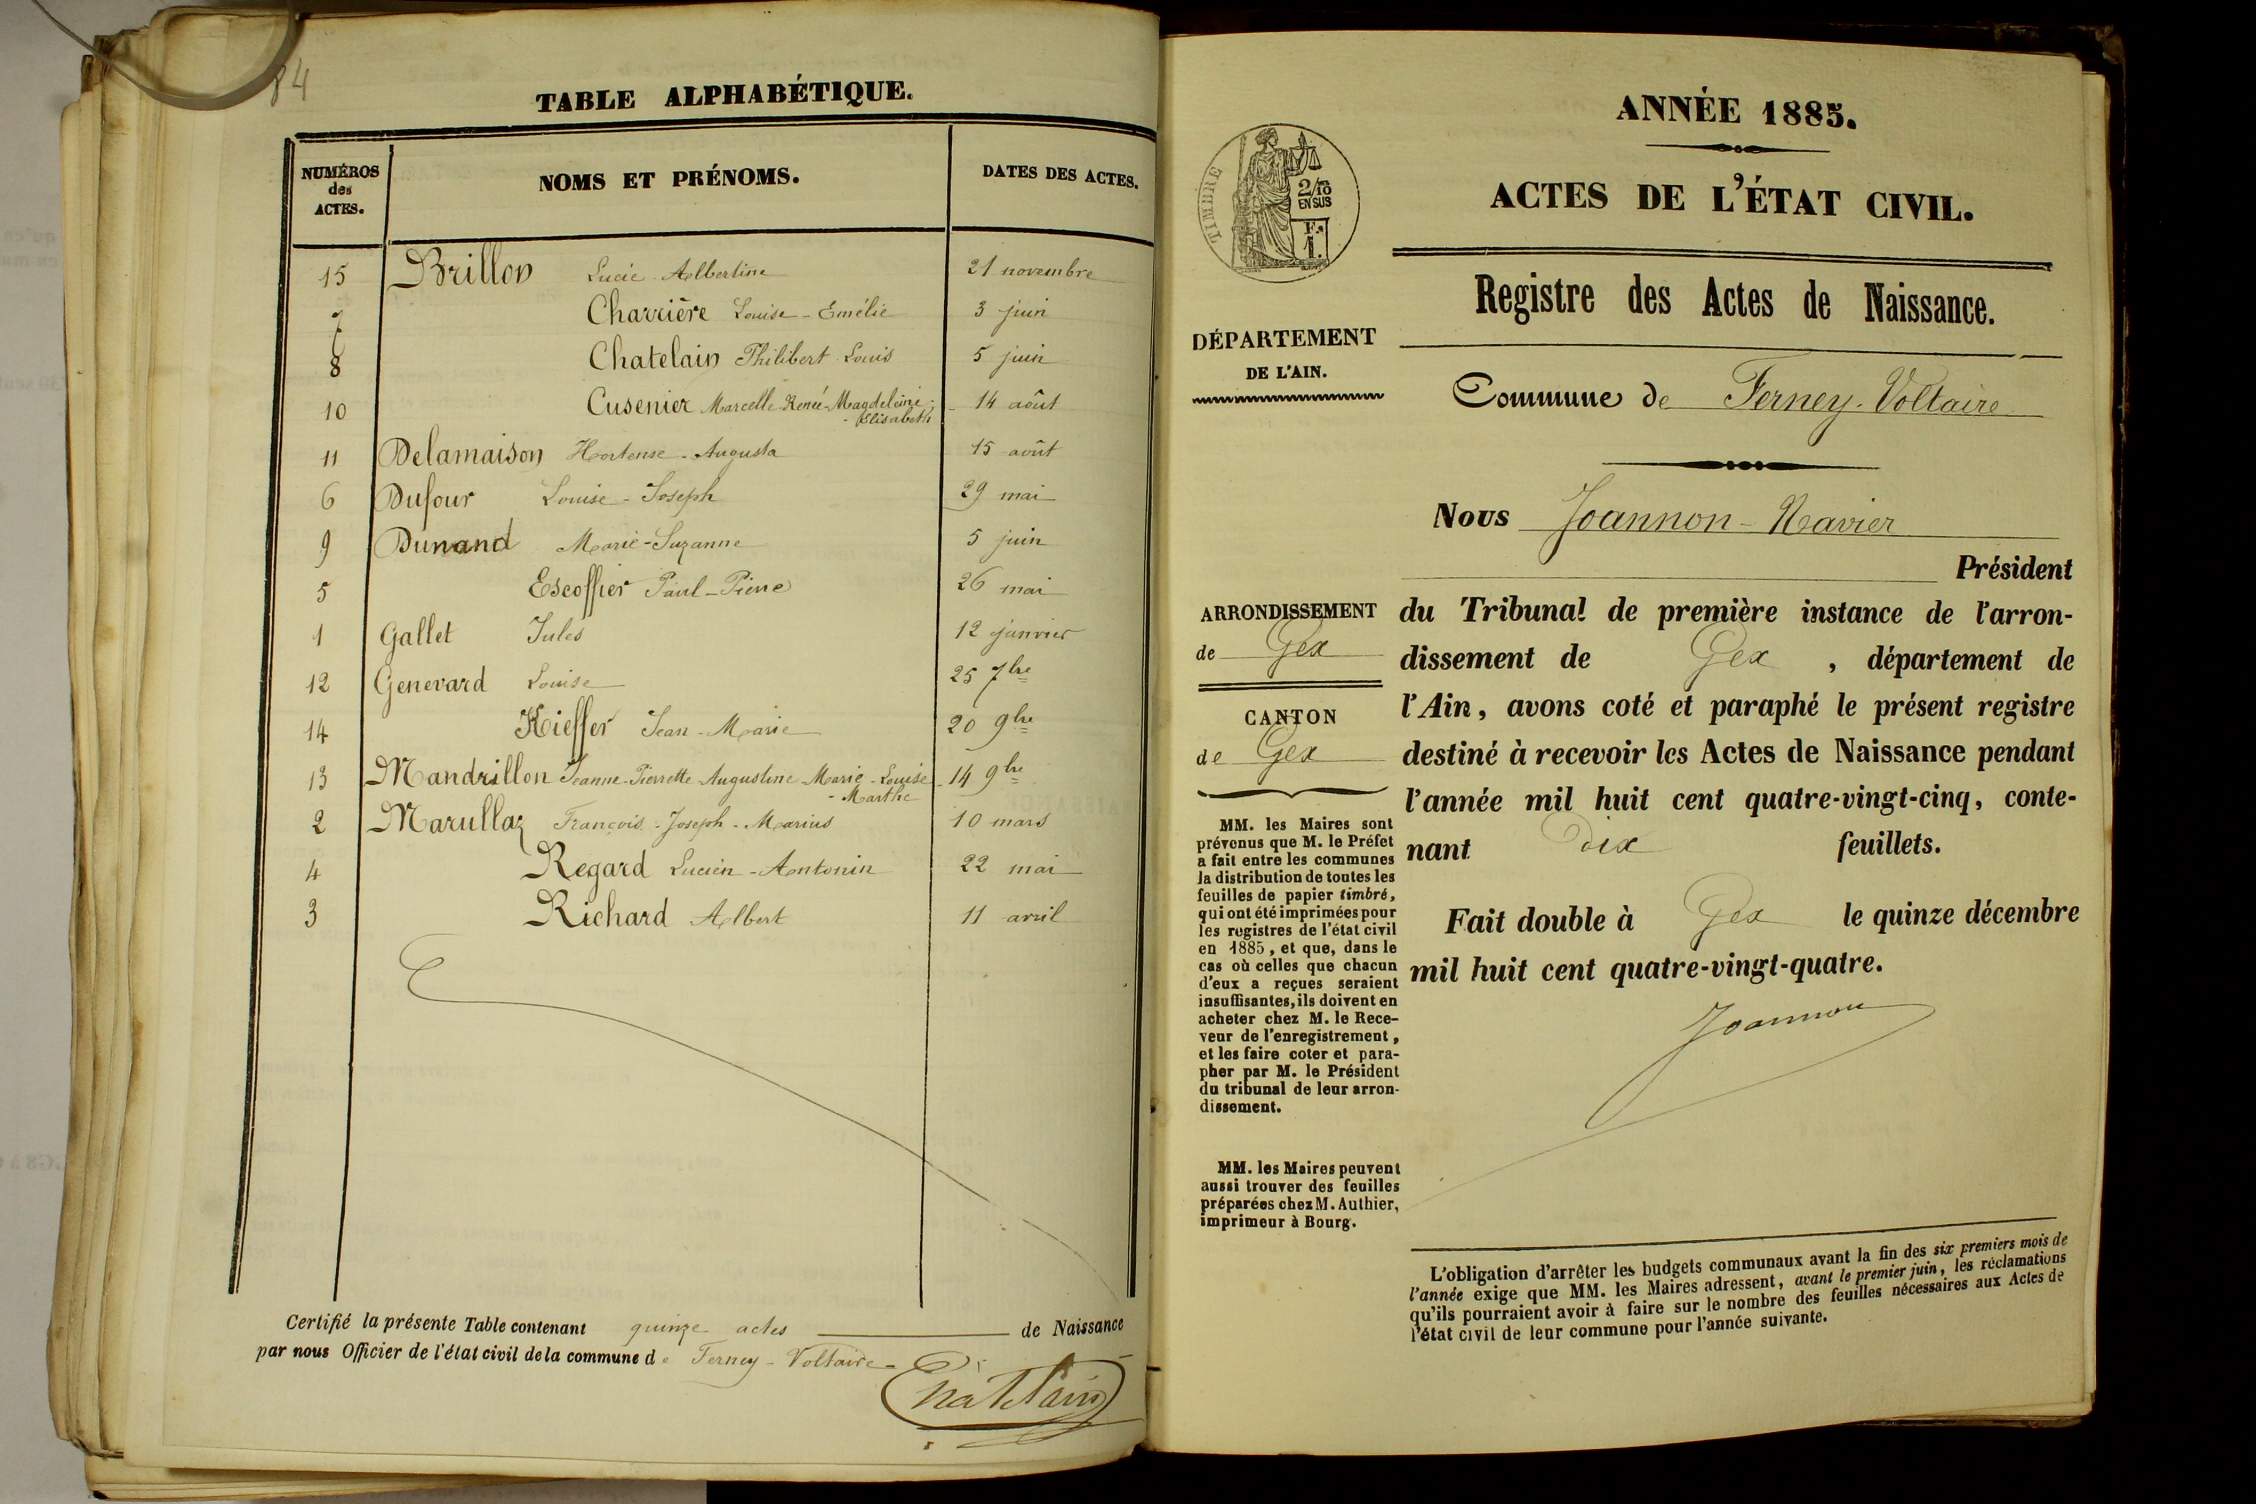 84
TABLE ALPHABÉTIQUE.
NUMÉROS des ACTES. NOMS ET PRÉNOMS. DATES DES ACTES.
15 Brillon Lucie Albertine 21 novembre
7 Charrière Louise-Emélie 3 juin
8 Chatelain Philibert Louis 5 juin
10 Cusenier Marcelle-Renée-Magdeleine- 14 août
-Elisabeth
11 Delamaison Hortense-Augusta 15 août
6 Dufour Louise-Joseph 29 mai
9 Dunand Marie-Suzanne 5 juin
5 Escoffier Paul-Pierre 26 mai
1 Gallet Jules 12 janvier
12 Genevard Louise 25 7bre
14 Kieffer Jean-Marie 20 9bre
13 Mandrillon Jeanne-Pierrette Augustine Marie-Louise- 14 9bre
-Marthe
2 Marullaz François-Joseph-Marius 10 mars
4 Regard Lucien-Antonin 22 mai
3 Richard Albert 11 avril
Certifié la présente Table contenant quinze actes de Naissance
par nous Officier de l'état civil de la commune de Ferney-Voltaire-
Chatelain
ANNÉE 1885.
ACTES DE L'ÉTAT CIVIL.
TIMBRE
2/10
EN SUS
Fc
1.
Registre des Actes de Naissance.
DÉPARTEMENT
DE L'AIN.
Commune de Ferney-Voltaire
Nous Joannon-Navier
Président
du Tribunal de première instance de l'arron-
dissement de Gex, département de
l'Ain, avons coté et paraphé le présent registre
destiné à recevoir les Actes de Naissance pendant
l'année mil huit cent quatre-vingt-cinq, conte-
nant Dix feuillets.
Fait double à Gex le quinze décembre
mil huit cent quatre-vingt-quatre.
Joannon
ARRONDISSEMENT
de Gex
CANTON
de Gex
MM. les Maires sont
prévenus que M. le Préfet
a fait entre les communes
la distribution de toutes les
feuilles de papier timbré,
qui ont été imprimées pour
les registres de l'état civil
en 1885, et que, dans le
cas où celles que chacun
d'eux a reçues seraient
insuffisantes, ils doivent en
acheter chez M. le Rece-
veur de l'enregistrement,
et les faire coter et para-
pher par M. le Président
du tribunal de leur arron-
dissement.
MM. les Maires peuvent
aussi trouver des feuilles
préparées chez M. Authier,
imprimeur à Bourg.
L'obligation d'arrêter les budgets communaux avant la fin des six premiers mois de
l'année exige que MM. les Maires adressent, avant le premier juin, les réclamations
qu'ils pourraient avoir à faire sur le nombre des feuilles nécessaires aux Actes de
l'état civil de leur commune pour l'année suivante.